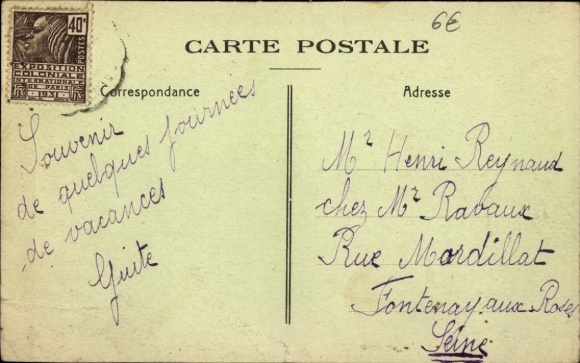 40c
POSTES
EXPOSITION
COLONIALE
INTERNATIONALE
DE PARIS
1931
6€
CARTE POSTALE
Correspondance
Adresse
Souvenir
de quelques journées
de vacances
Guite
Mr Henri Reynaud
chez Mr Ravaux
Rue Mordillat
Fontenay aux Roses
Seine